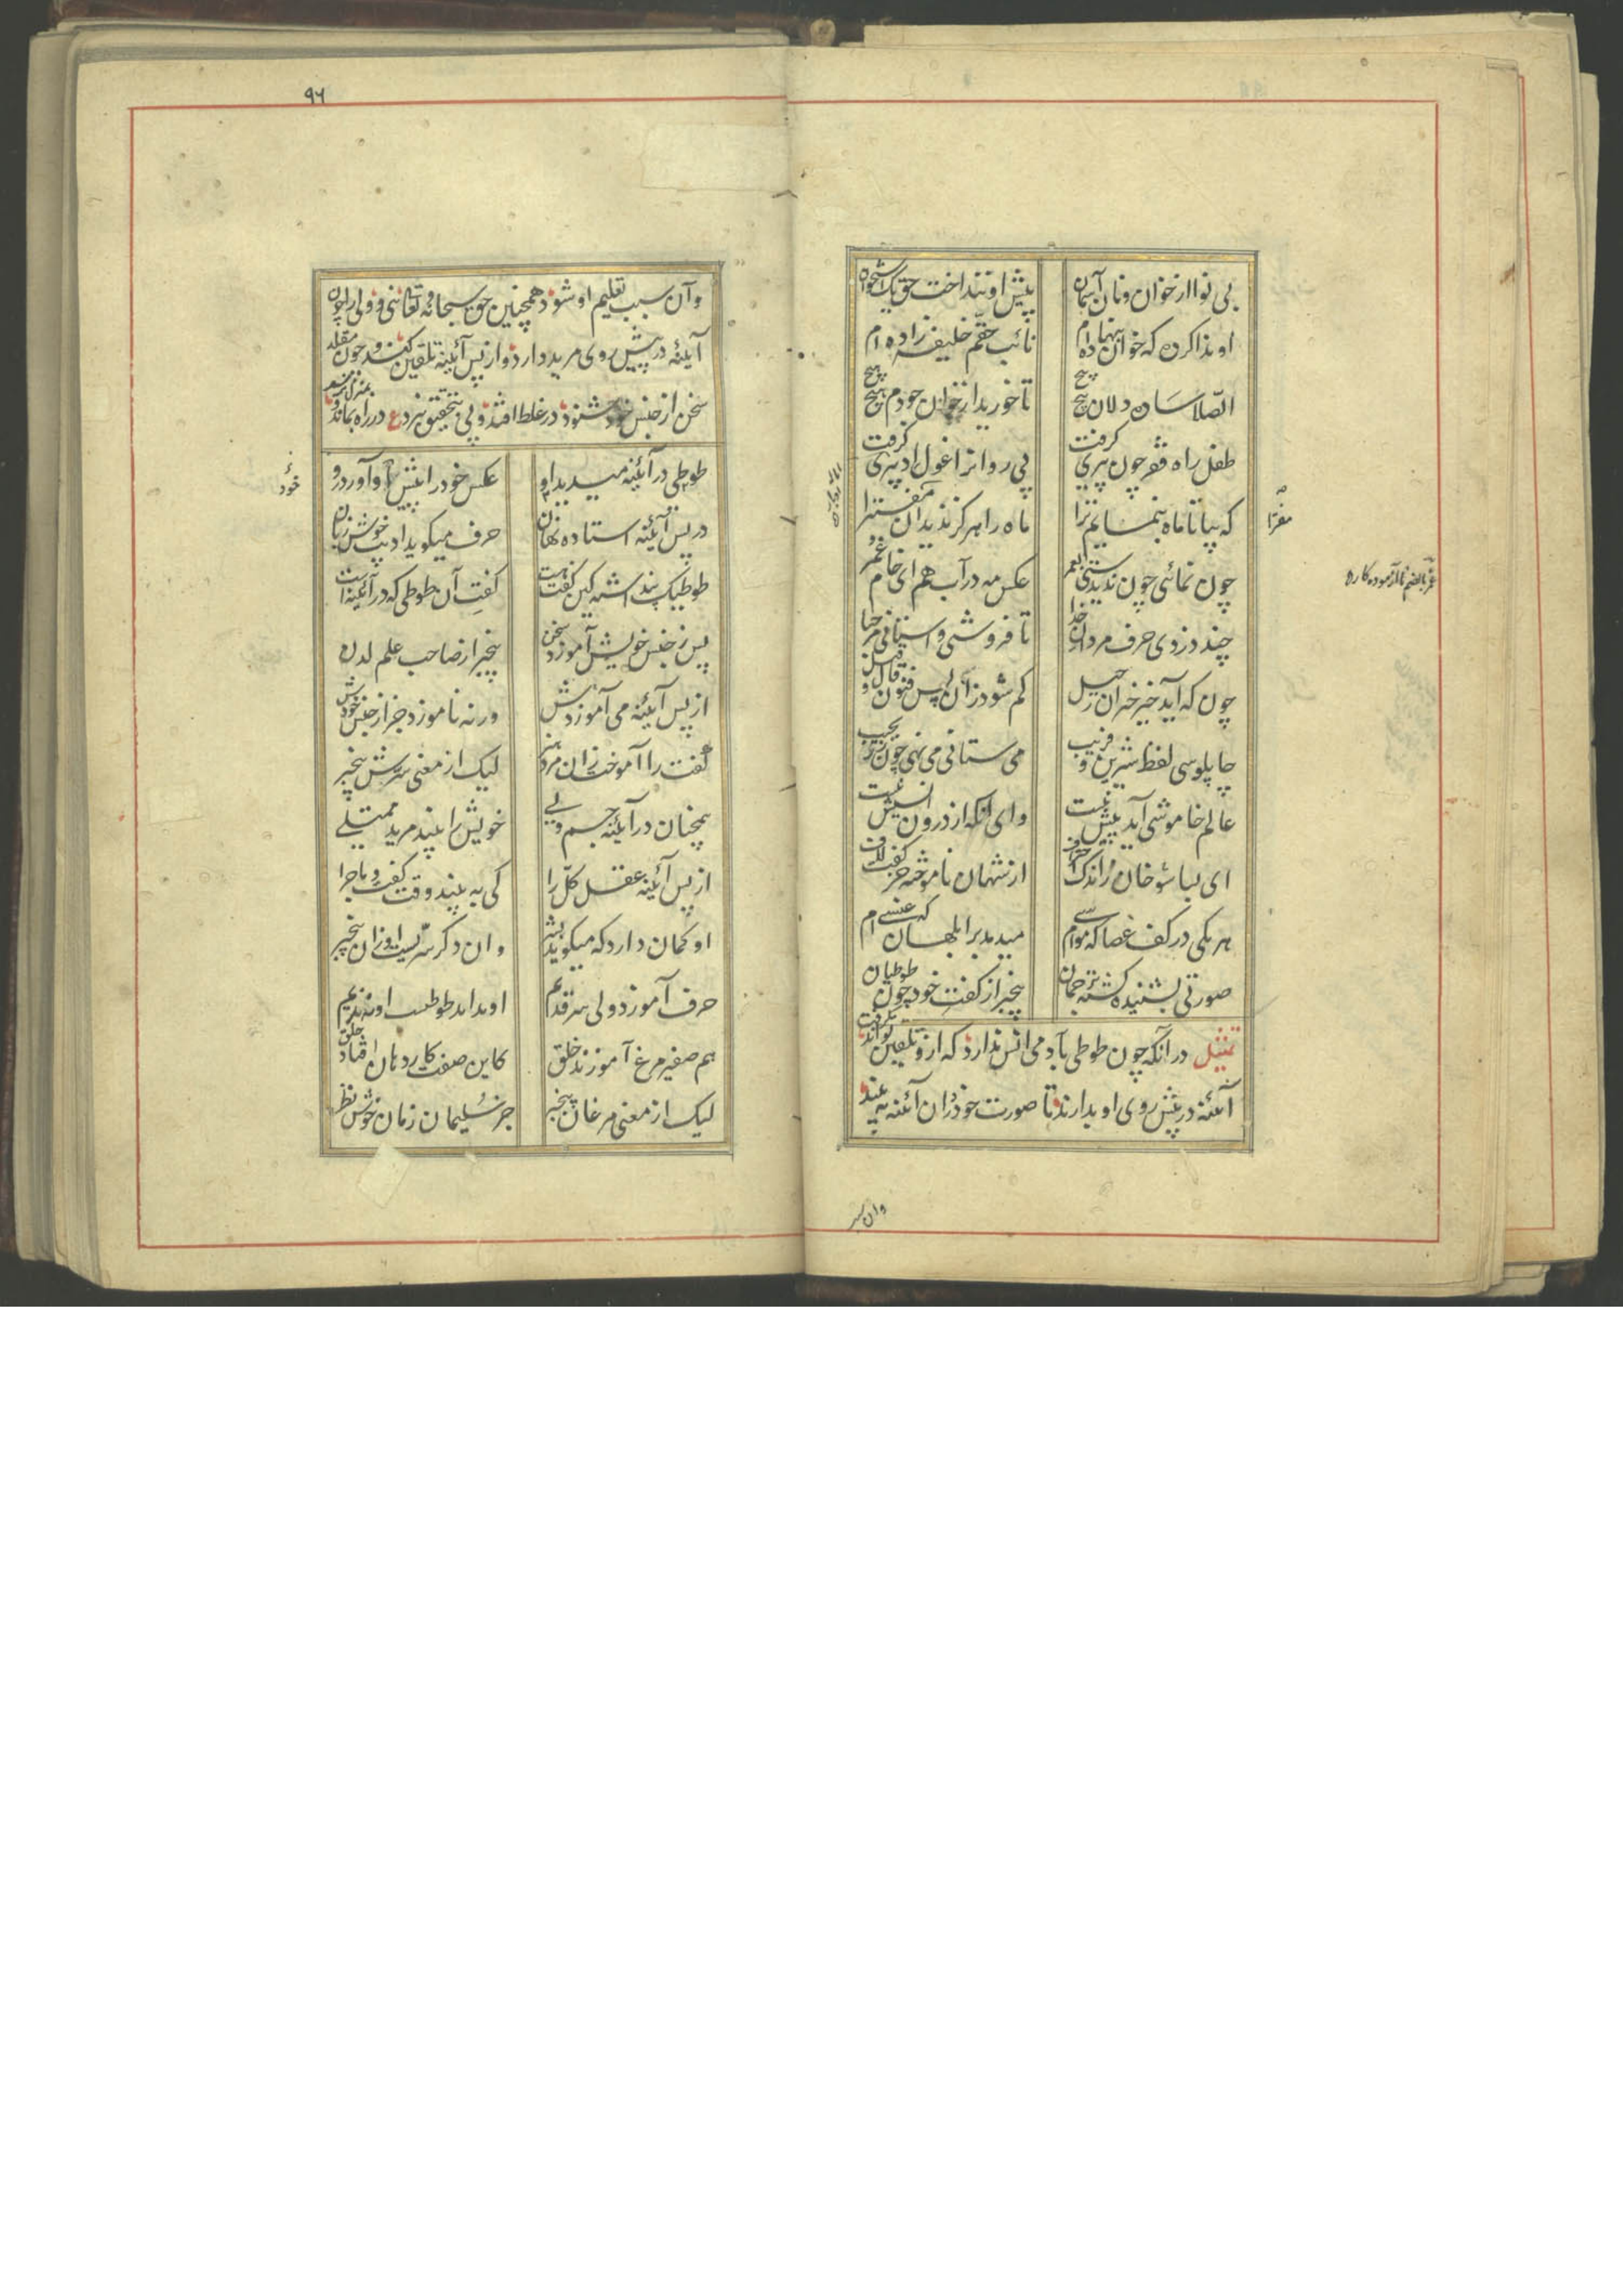 بی نوا از خوان و نان آسمان
پیش او ننداخت حق یک استخوان
او ندا کرده که خوان بنهاده ام
نائب حقّم خلیفه زاده ام
الصّلا ساده دلان پیچ پیچ
تا خورید از خوان جودم هیچ هیچ
طفل راه فقر چون پیری گرفت
پی روانرا غول ادبیری گرفت
که بیا تا ماه بنمایم ترا
ماه را هرگز ندید آن مفترا
چون نمائی چون ندیدستی بعمر
عکس مه در آب هم ای خام غمر
چند دزدی حرف مردان خدا
تا فروشی و استانی مرحبا
چاپلوسی لفظ شیرین و فریب
می ستانی می نهی چون زر بجیب
عالم خاموشی آید پیش بیست
وای آنکه از درون انسیش نیست
هر یکی در کف عصا که موسی ام
میدمد بر ابلهان که عیسی ام
صورتی بشنیده گشته ترجمان
بیخبر از گفت خود چون طوطیان
تمثیل در آنکه چون طوطی بآدمی انس ندارد که ازو تلقین تواند گرفت
آئنه در پیش روی او بدارند تا صورت خود در آن آئنه به بیند
وان سبب
۹۶
و آن سبب تعلیم او شود همچنین حق سبحانه و تعالی نبی و ولی را چون
آینه در پیش روی مرید دارد و از پس آئینه تلقین کند و چون مقلد
سخن از جنس خود شنود در غلط افتد و پی بتحقیق نبرد ع در راه بماند و بمنزل نرسد
طوطی در آئینه میبیند او
عکس خود را پیش او آورده رو
خود
در پس آئینه استاده نهان
حرف میگوید ادیب خوش زبان
طوطیک پنداشته کین گفت پست
گفتِ آن طوطی که در آئینه است
پس ز جنس خویش آموزد سخن
بیخبر از صاحب علم لدن
از پس آئینه می آموزدش
ورنه ناموزد جز از جنس خودش
گفت را آموخت زان مرد هنر
لیک از معنی سرّش بیخبر
همچنان در آینه جسم ولی
خویش را بیند مرید ممتلی
از پس آئینه عقل کلّ را
کی به بیند وقت گفت و ماجرا
او گمان دارد که میگوید بشر
وان دگر سرّیست او زان بیخبر
حرف آموزد ولی سر قدیم
او نداند طوطیست او نه ندیم
هم صفیر مرغ آموزند خلق
کاین صفت کار دهان افتاد و حلق
لیک از معنی مرغان بیخبر
جز سُلیمان زمان خوش نظر